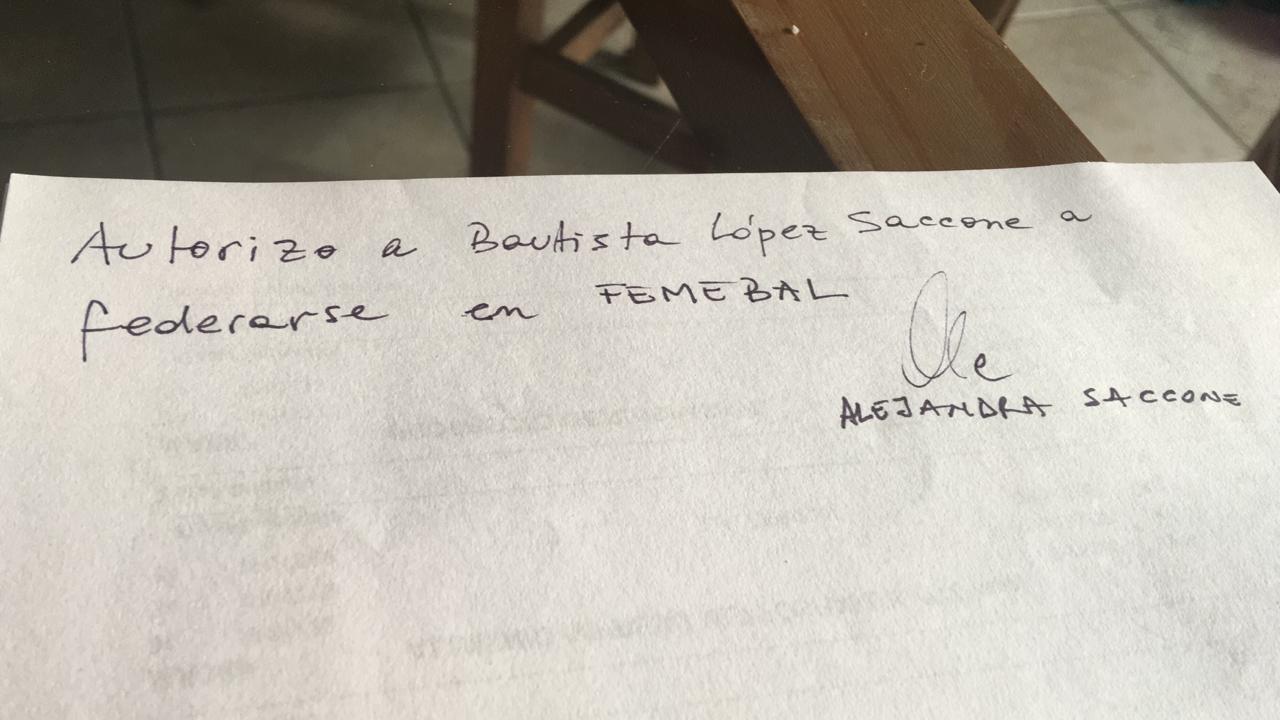 Autorizo a Bautista López Saccone a
federarse en FEMEBAL
Ale
ALEJANDRA SACCONE